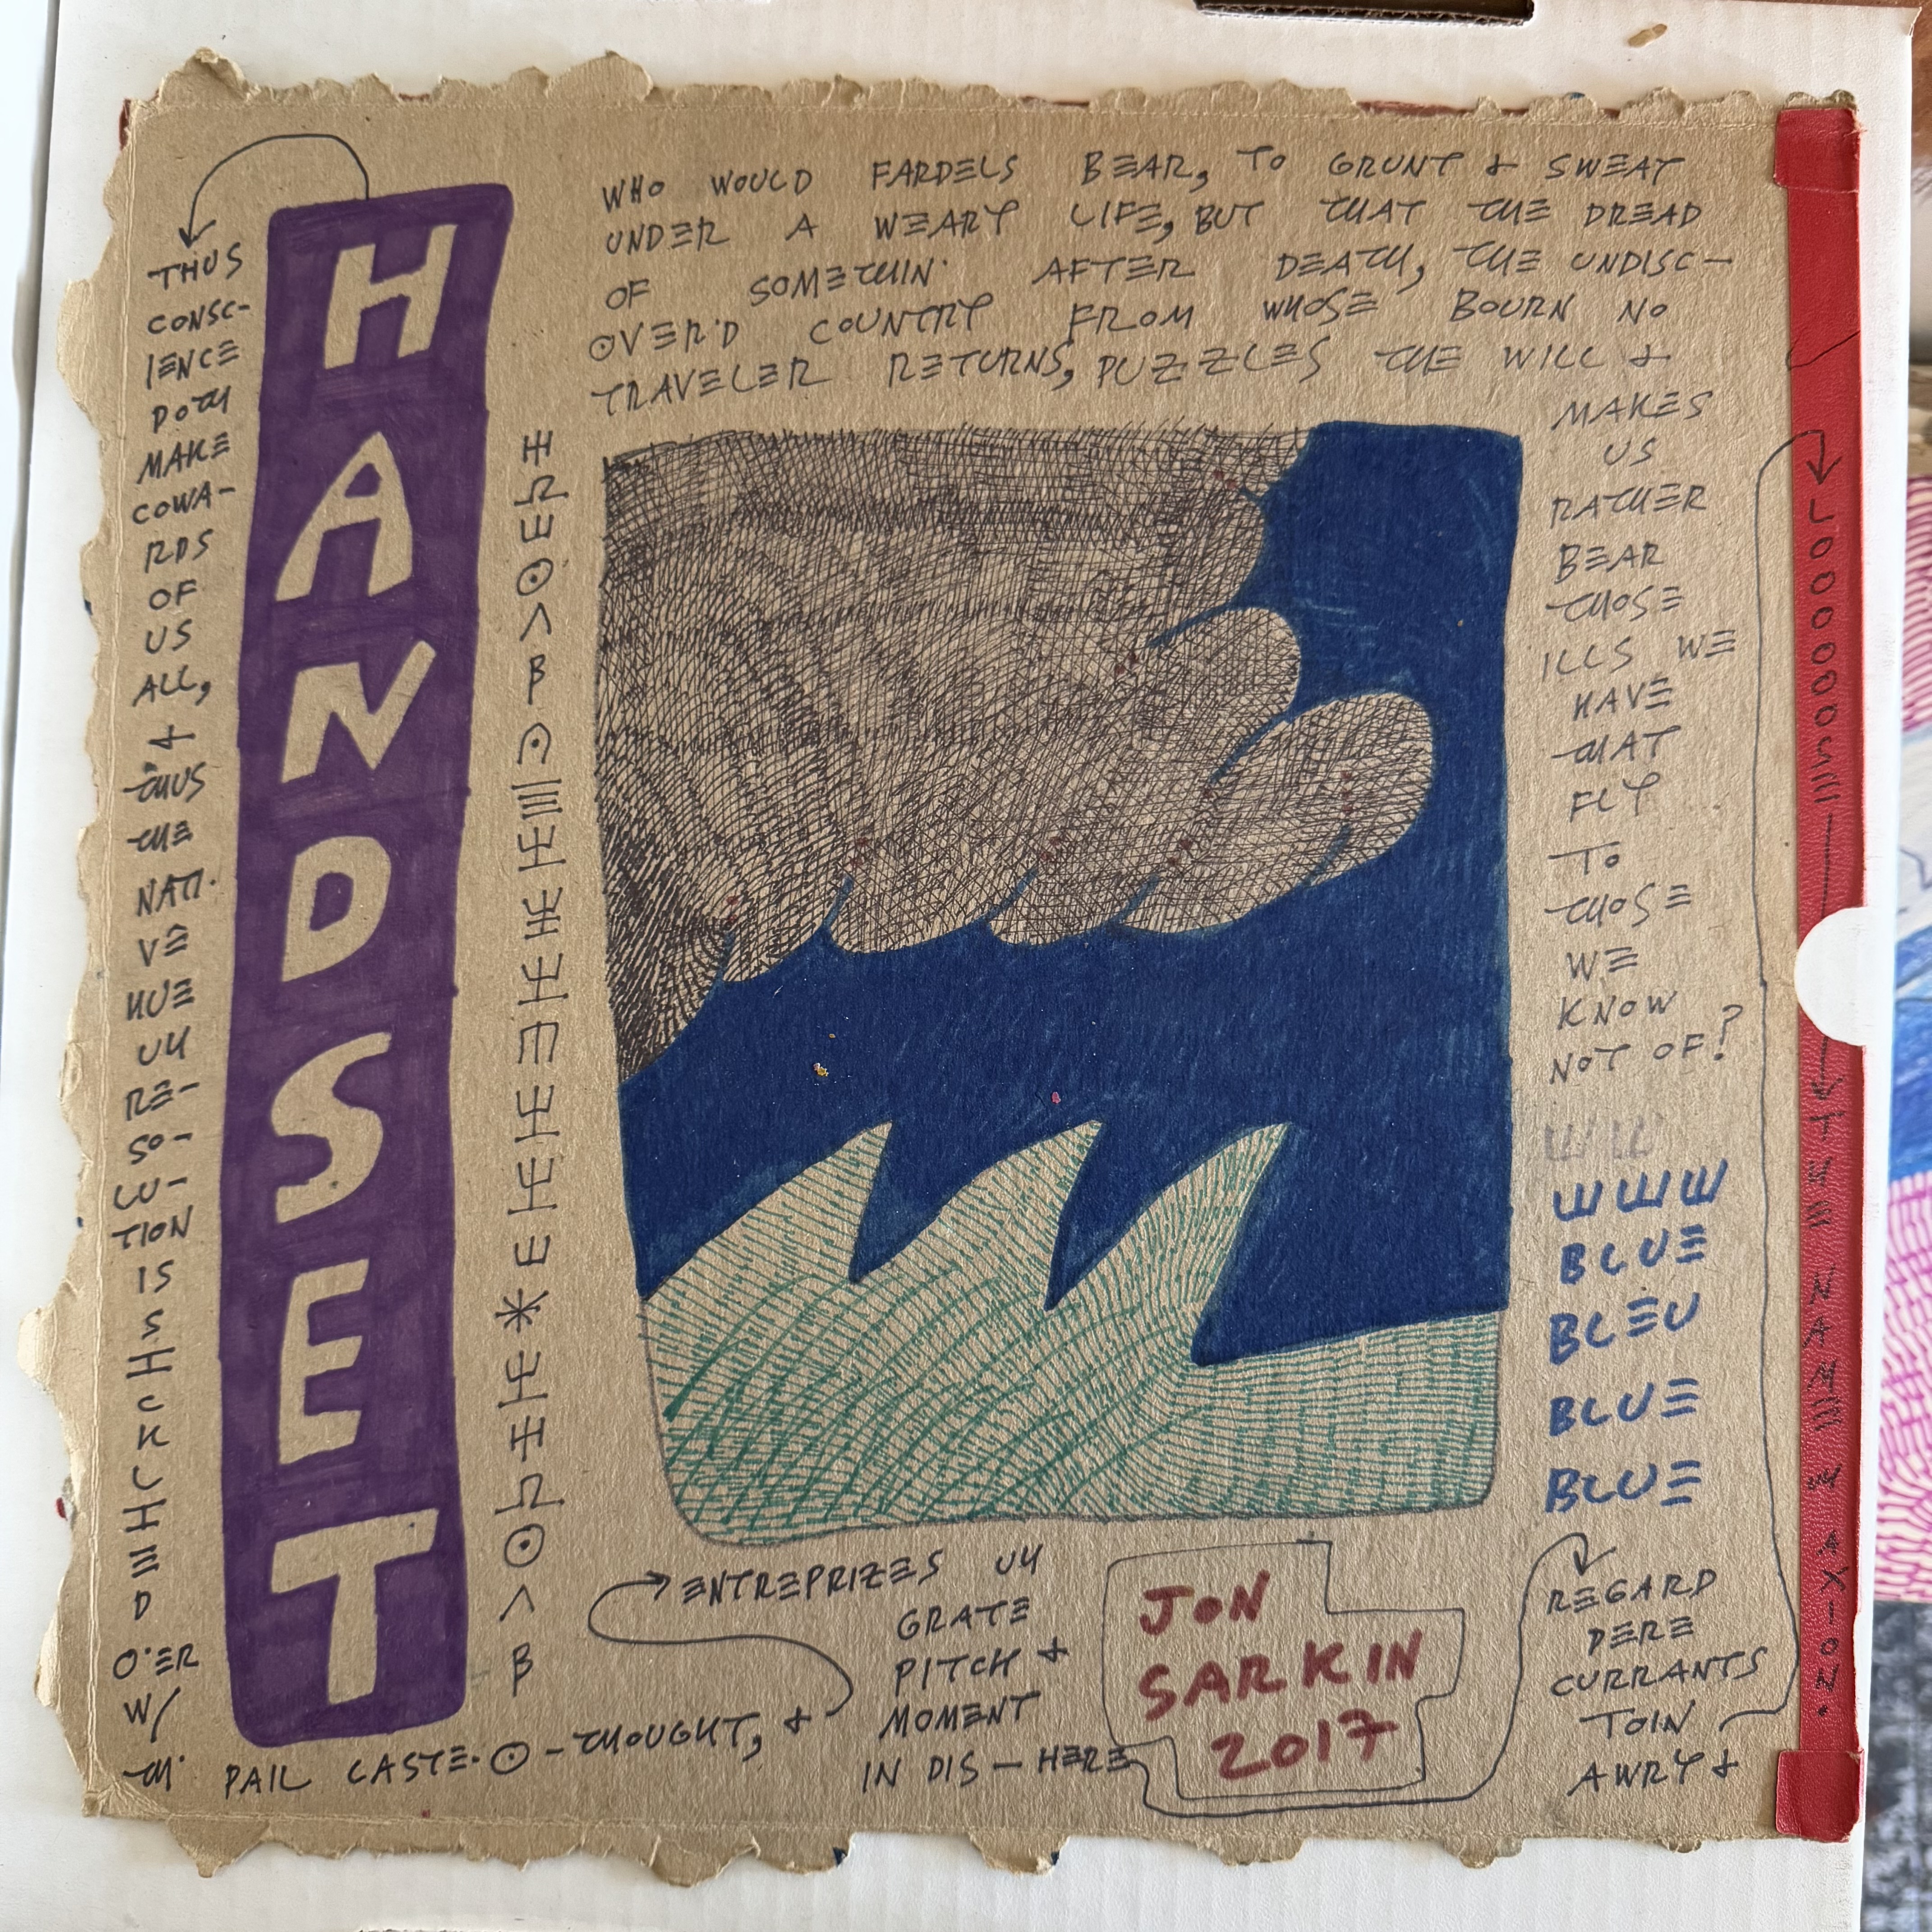 WHO WOULD FARDELS BEAR, TO GRUNT & SWEAT
UNDER A WEARY LIFE, BUT THAT THE DREAD
OF SOMETHIN' AFTER DEATH, THE UNDISC-
OVER'D COUNTRY FROM WHOSE BOURN NO
TRAVELER RETURNS, PUZZLES THE WILL &
MAKES
US
RATHER
BEAR
THOSE
ILLS WE
HAVE
THAT
FLY
TO
THOSE
WE
KNOW
NOT OF?
BLUE
BLEU
BLUE
BLUE
HANDSET
THUS
CONSC-
IENCE
DOTH
MAKE
COWA-
RDS
OF
US
ALL,
&
THUS
THE
NATI-
VE
HUE
UV
RE-
SO-
LU-
TION
IS
S
I
C
K
L
I
E
D
O'ER
W/
TH' PAIL CASTE O-THOUGHT, &
ENTREPRIZES UV
GRATE
PITCH &
MOMENT
IN DIS-HERE
REGARD
DERE
CURRANTS
TOIN
AWRY &
LOOOOOOSE
THE NAME
AXION.
JON
SARKIN
2017